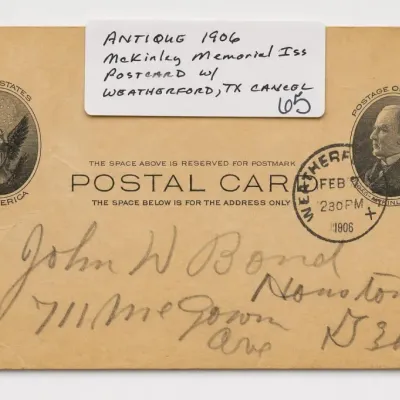 ANTIQUE 1906
McKinley Memorial Iss
POSTCARD W/
WEATHERFORD, TX CANCEL
65
STATES
AMERICA
POSTAGE O
THE SPACE ABOVE IS RESERVED FOR POSTMARK
POSTAL CARD
THE SPACE BELOW IS FOR THE ADDRESS ONLY
WEATHERF
X
FEB
230PM
1906
John W Bond
Houston
711 McGowen
Ave